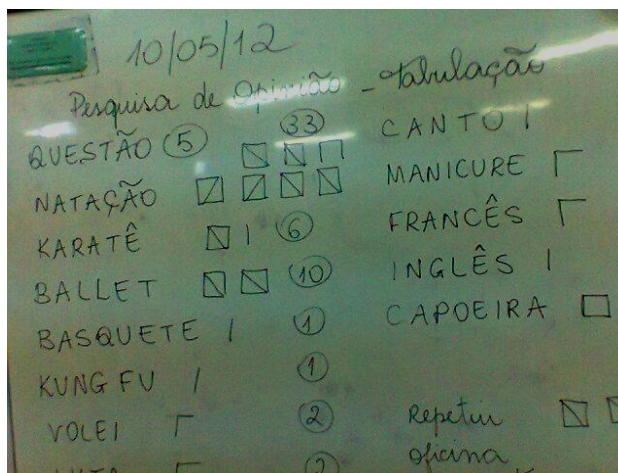 10/05/12
Pesquisa de Opinião - Tabulação
QUESTÃO 5 33
NATAÇÃO
KARATÊ 6
BALLET 10
BASQUETE | 1
KUNG FU | 1
VOLEI 2
LUTA 2
CANTO |
MANICURE
FRANCÊS
INGLÊS |
CAPOEIRA
Repetir
oficina